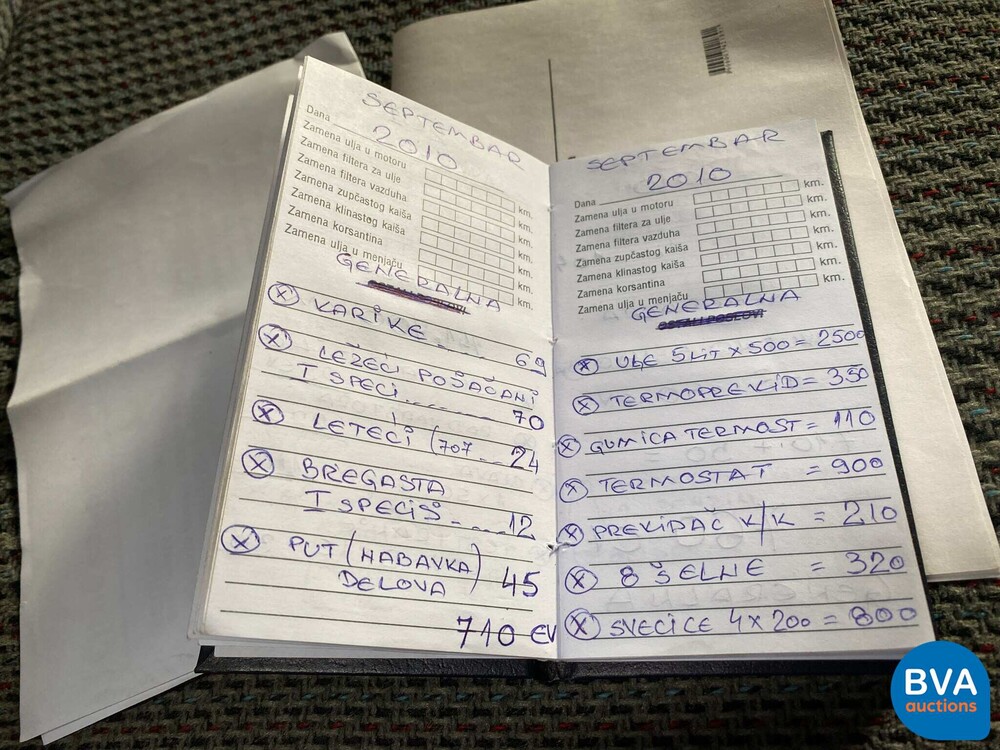 SEPTEMBAR
2010
Dana
Zamena ulja u motoru
Zamena filtera za ulje
Zamena filtera vazduha
Zamena zupčastog kaiša
Zamena klinastog kaiša
Zamena korsantina
Zamena ulja u menjaču
km.
km.
km.
km.
km.
km.
km.
GENERALNA
KARIKE 69
LEŽEĆI POSAČANI
I SPECI 70
LETEĆI (707 24
BREGASTA
I SPECIŠ 12
PUT (NABAVKA)
DELOVA 45
710 EV
SEPTEMBAR
2010
Dana
Zamena ulja u motoru
Zamena filtera za ulje
Zamena filtera vazduha
Zamena zupčastog kaiša
Zamena klinastog kaiša
Zamena korsantina
Zamena ulja u menjaču
km.
km.
km.
km.
km.
km.
km.
GENERALNA
OSTALI POSLOVI
ULE 5 LIT X 500 = 2500
TERMOPREKID = 350
GUMICA TERMOST = 110
TERMOSTAT = 900
PREKIDAČ K/K = 210
8 ŠELNE = 320
SVECICE 4 X 200 = 800
BVA
auctions